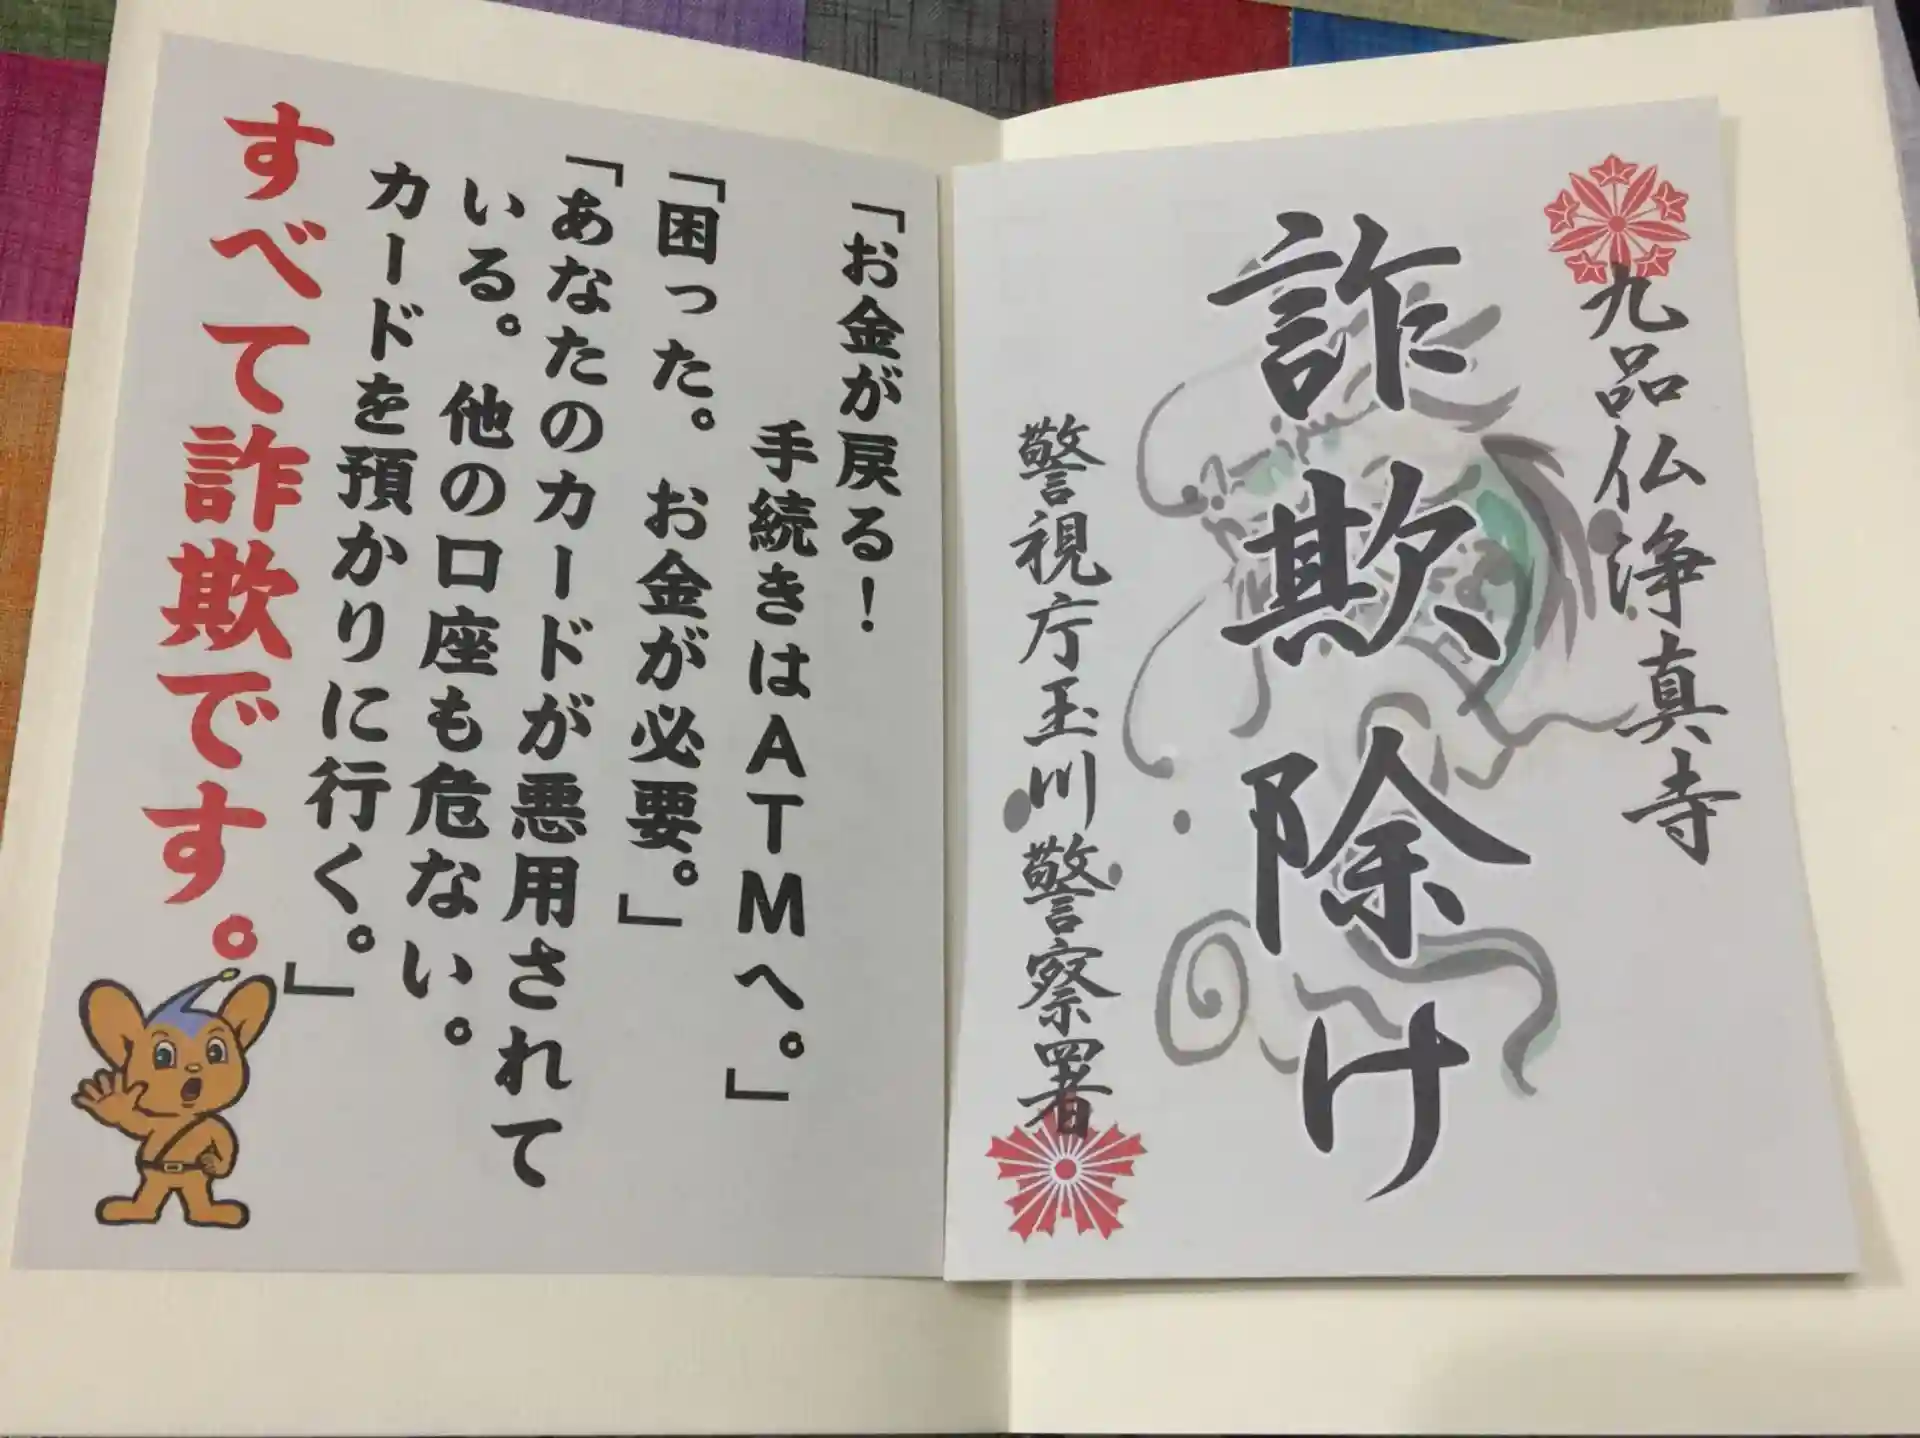 九品仏浄真寺
詐欺除け
警視庁玉川警察署
「お金が戻る！
手続きはＡＴＭへ。」
「困った。お金が必要。」
「あなたのカードが悪用されて
いる。他の口座も危ない。
カードを預かりに行く。」
すべて詐欺です。